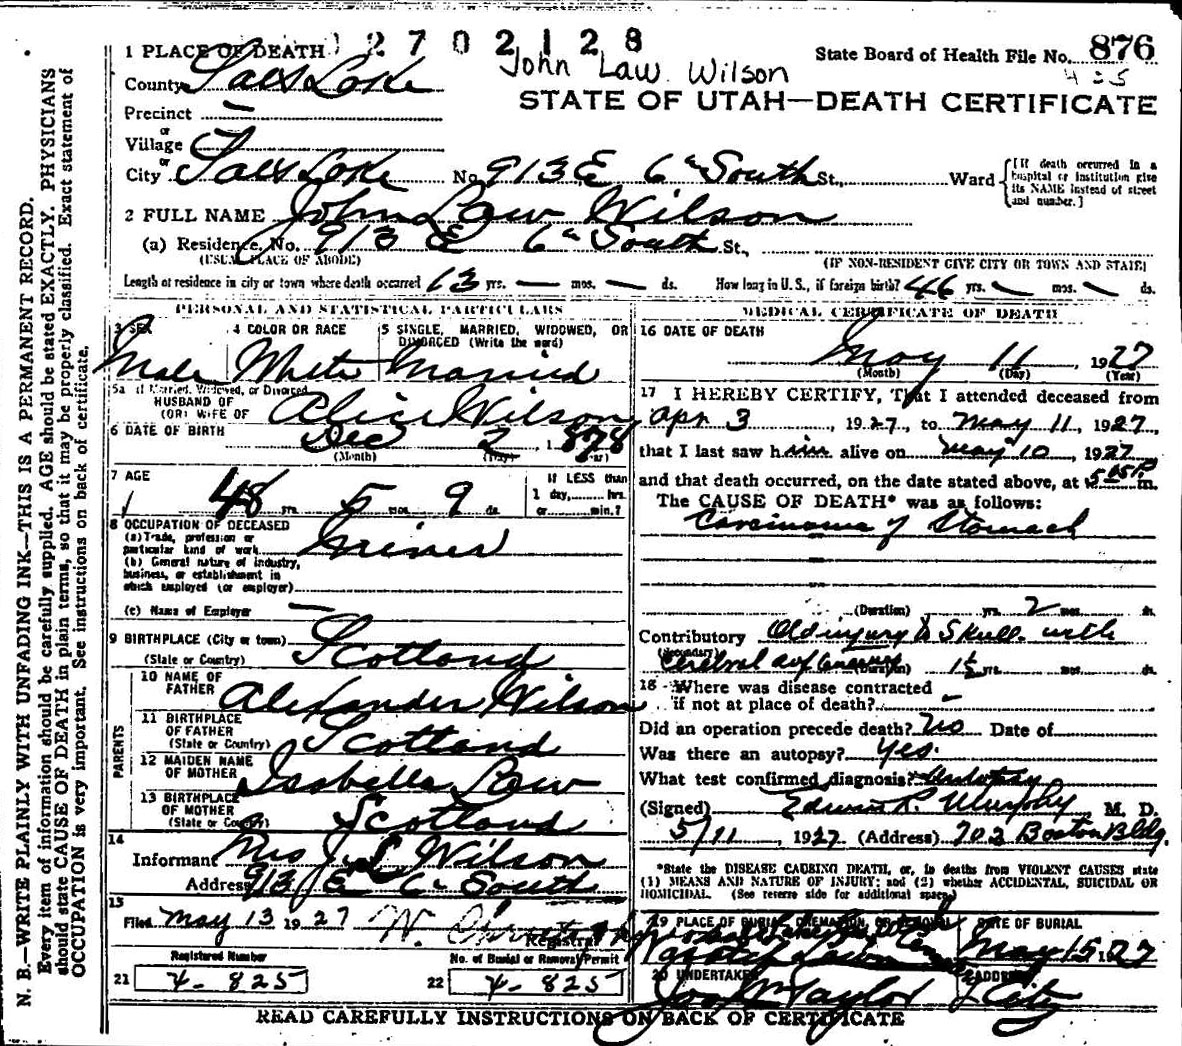 2702128
State Board of Health File No. 876
John Law Wilson
435
STATE OF UTAH—DEATH CERTIFICATE
1 PLACE OF DEATH
County Salt Lake
Precinct —
or
Village
or
City Salt Lake No. 913 E 6th South St., Ward
[If death occurred in a hospital or institution give its NAME instead of street and number.]
2 FULL NAME John Law Wilson
(a) Residence, No. 913 E 6th South St.,
(USUAL PLACE OF ABODE) (IF NON-RESIDENT GIVE CITY OR TOWN AND STATE)
Length of residence in city or town where death occurred 13 yrs. — mos. — ds. How long in U. S., if foreign birth? 46 yrs. — mos. — ds.
PERSONAL AND STATISTICAL PARTICULARS
3 SEX Male
4 COLOR OR RACE White
5 SINGLE, MARRIED, WIDOWED, OR DIVORCED (Write the word) Married
5a If Married, Widowed, or Divorced
HUSBAND OF
(OR) WIFE OF Alice Wilson
6 DATE OF BIRTH Dec 2 1878
(Month) (Day) (Year)
7 AGE 48 yrs. 5 mos. 9 ds.
If LESS than
1 day, hrs.
or min.?
8 OCCUPATION OF DECEASED
(a) Trade, profession or
particular kind of work Miner
(b) General nature of industry,
business, or establishment in
which employed (or employer)
(c) Name of Employer —
9 BIRTHPLACE (City or town)
(State or Country) Scotland
PARENTS
10 NAME OF FATHER Alexander Wilson
11 BIRTHPLACE OF FATHER
(State or Country) Scotland
12 MAIDEN NAME OF MOTHER Isabella Law
13 BIRTHPLACE OF MOTHER
(State or Country) Scotland
14
Informant Mrs J. L Wilson
Address 913 E 6 South
15
Filed May 13 1927
Registrar
Registered Number
21 4-825
No. of Burial or Removal Permit
22 4-825
MEDICAL CERTIFICATE OF DEATH
16 DATE OF DEATH
May 11 1927
(Month) (Day) (Year)
17 I HEREBY CERTIFY, That I attended deceased from
Apr 3, 1927, to May 11, 1927,
that I last saw him alive on May 10, 1927
and that death occurred, on the date stated above, at 5:05 P. m.
The CAUSE OF DEATH* was as follows:
Carcinoma of Stomach
(Duration) yrs. 2 mos. ds.
Contributory Old injury to Skull with
(Secondary) Cerebral
(Duration) 15 yrs. mos. ds.
18 Where was disease contracted
if not at place of death? —
Did an operation precede death? No Date of
Was there an autopsy? Yes.
What test confirmed diagnosis? Autopsy
(Signed) Edwin R. Murphy M. D.
5/11, 1927 (Address) 702 Boston Bldg.
*State the DISEASE CAUSING DEATH, or, in deaths from VIOLENT CAUSES state
(1) MEANS AND NATURE OF INJURY; and (2) whether ACCIDENTAL, SUICIDAL OR
HOMICIDAL. (See reverse side for additional space)
19 PLACE OF BURIAL, CREMATION, OR REMOVAL
DATE OF BURIAL
May 15 1927
20 UNDERTAKER
Jos Wm Taylor
ADDRESS
City
READ CAREFULLY INSTRUCTIONS ON BACK OF CERTIFICATE
N. B.—WRITE PLAINLY WITH UNFADING INK—THIS IS A PERMANENT RECORD.
Every item of information should be carefully supplied. AGE should be stated EXACTLY. PHYSICIANS
should state CAUSE OF DEATH in plain terms, so that it may be properly classified. Exact statement of
OCCUPATION is very important. See instructions on back of certificate.